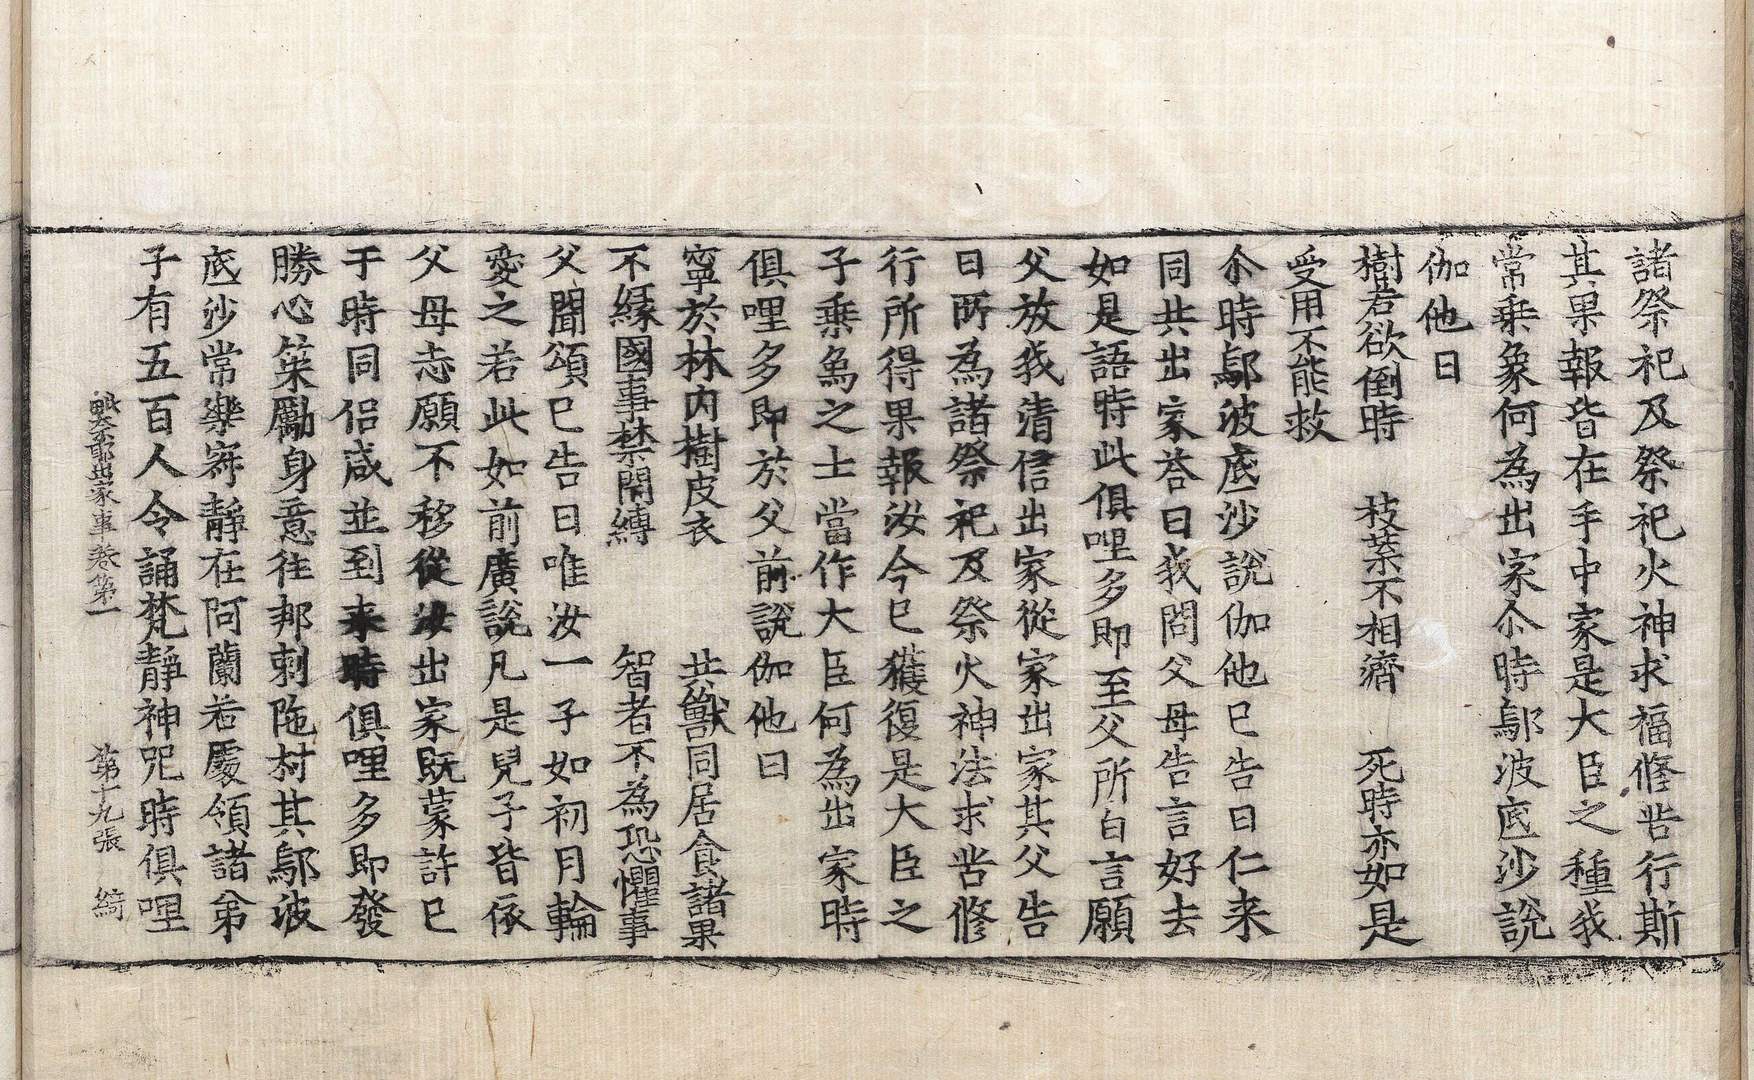 諸祭祀及祭祀火神求福修苦行斯
其果報皆在手中家是大臣之種我
常乗象何為出家尒時鄔波底沙說
伽他曰
樹若欲倒時　枝葉不相濟　死時亦如是
受用不能救
尒時鄔波底沙說伽他已告曰仁来
同共出家荅曰我問父母告言好去
如是語時此俱哩多即至父所白言願
父放我清信出家從家出家其父告
曰所為諸祭祀及祭火神法求苦修
行所得果報汝今已獲復是大臣之
子乗烏之士當作大臣何為出家時
俱哩多即於父前說伽他曰
寧於林内樹皮衣　共獸同居食諸果
不緣國事禁閇縛　智者不為恐懼事
父聞頌已告曰唯汝一子如初月輪
愛之若此如前廣說凡是兒子皆依
父母志願不移從汝出家旣蒙許已
于時同侶咸並到来時俱哩多即發
勝心策勵身意往邦剌陁村其鄔波
底沙常樂寂靜在阿蘭若處領諸弟
子有五百人令誦梵靜神呪時俱哩
出家事卷第一　第十九張　綺